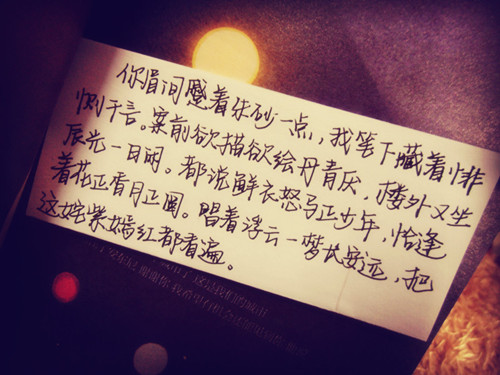 你眉间蹙着朱砂一点，我笔下藏着悱
恻千言。案前欲描欲绘丹青厌，楼外又生
辰光一日闲。都说鲜衣怒马正少年，恰逢
着花正香月正圆。唱着浮云一梦长安远，把
这姹紫嫣红都看遍。